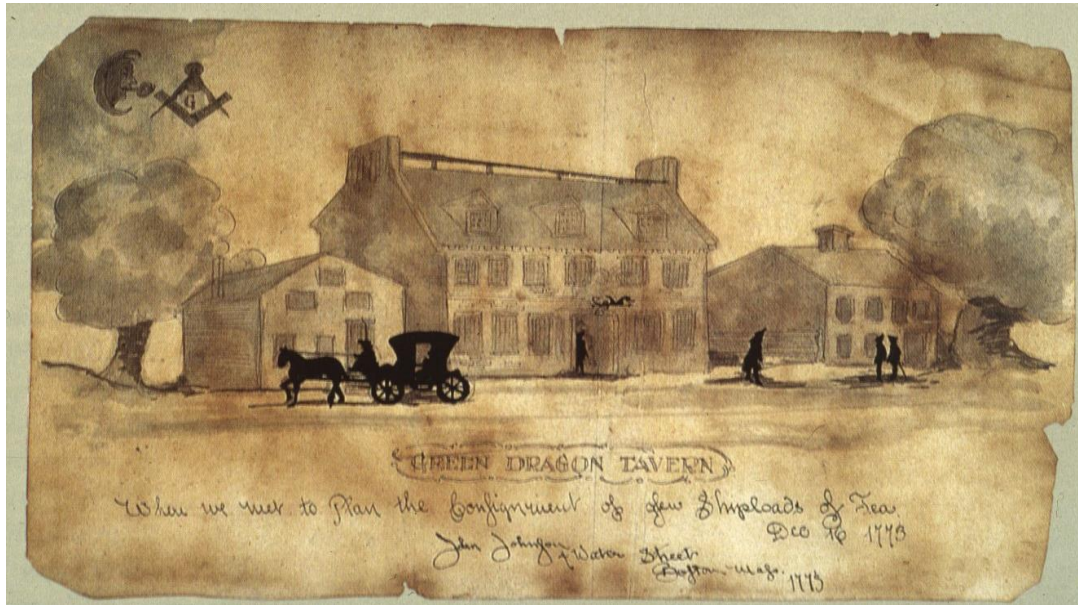 G
GREEN DRAGON TAVERN
When we met to Plan the Conſignment of few Shiploads of Tea.
Dec 16 1773
John Johnſon
4 Water Street
Boſton, Maſs.
1773